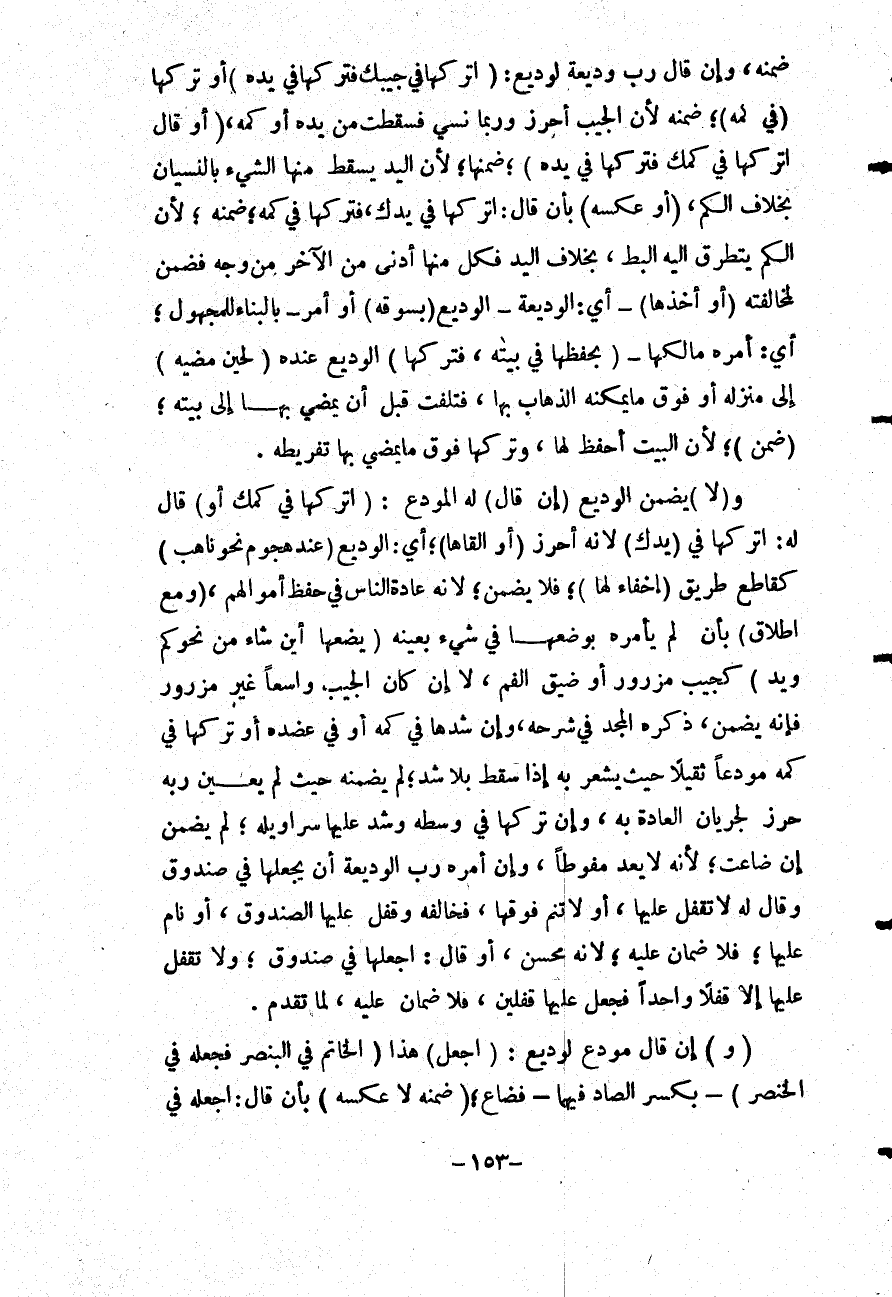 ضمنه، وإن قال رب وديعة لوديع: ( اتركها في جيبك فتركها في يده )أو تركها
(في كمه)؛ ضمنه لأن الجيب أحرز وربما نسي فسقطت من يده أو كمه،( أو قال
اتركها في كمك فتركها في يده ) ؛ضمنها؛ لأن اليد يسقط منها الشيء بالنسيان
بخلاف الكم، (أو عكسه) بأن قال:اتركها في يدك،فتركها في كمه؛ضمنه ؛ لأن
الكم يتطرق اليه البط ، بخلاف اليد فكل منها أدنى من الآخر من وجه فضمن
لمخالفته (أو أخذها) – أي:الوديعة – الوديع(بسوقه) أو أمر– بالبناء للمجهول ؛
أي: أمره مالكها – ( بحفظها في بيته ، فتركها ) الوديع عنده ( لحين مضيه )
إلى منزله أو فوق مايمكنه الذهاب بها ، فتلفت قبل أن يمضي بهـا إلى بيته ؛
(ضمن )؛ لأن البيت أحفظ لها ، وتركها فوق مايمضي بها تفريطه .
و(لا )يضمن الوديع (إن قال) له المودع : ( اتركها في كمك أو) قال
له: اتركها في (يدك) لانه أحرز (أو القاها)؛أي:الوديع(عند هجوم نحو ناهب )
كقاطع طريق (إخفاء لها )؛ فلا يضمن؛ لانه عادة الناس في حفظ أموالهم ،(ومع
اطلاق) بأن لم يأمره بوضعهـا في شيء بعينه ( يضعها أين شاء من نحو كم
ويد ) كجيب مزرور أو ضيق الفم ، لا إن كان الجيب واسعاً غير مزرور
فإنه يضمن، ذكره المجد في شرحه،وإن شدها في كمه أو في عضده أو تركها في
كمه مودعاً ثقيلًا حيث يشعر به إذا سقط بلا شد؛لم يضمنه حيث لم يعـين ربه
حرز لجريان العادة به ، وإن تركها في وسطه وشد عليها سراويله ؛ لم يضمن
إن ضاعت؛ لأنه لايعد مفوطاً ، وإن أمره رب الوديعة أن يجعلها في صندوق
وقال له لا تقفل عليها ، أو لاتنم فوقها ، فخالفه وقفل عليها الصندوق ، أو نام
عليها ؛ فلا ضمان عليه ؛ لانه محسن ، أو قال : اجعلها في صندوق ؛ ولا تقفل
عليها إلا قفلًا واحداً فجعل عليها قفلين ، فلا ضمان عليه ، لما تقدم .
( و ) إن قال مودع لوديع : ( اجعل) هذا ( الخاتم في البنصر فجعله في
الخنصر ) – بكسر الصاد فيها – فضاع؛( ضمنه لا عكسه ) بأن قال:اجعله في
–١٥٣–